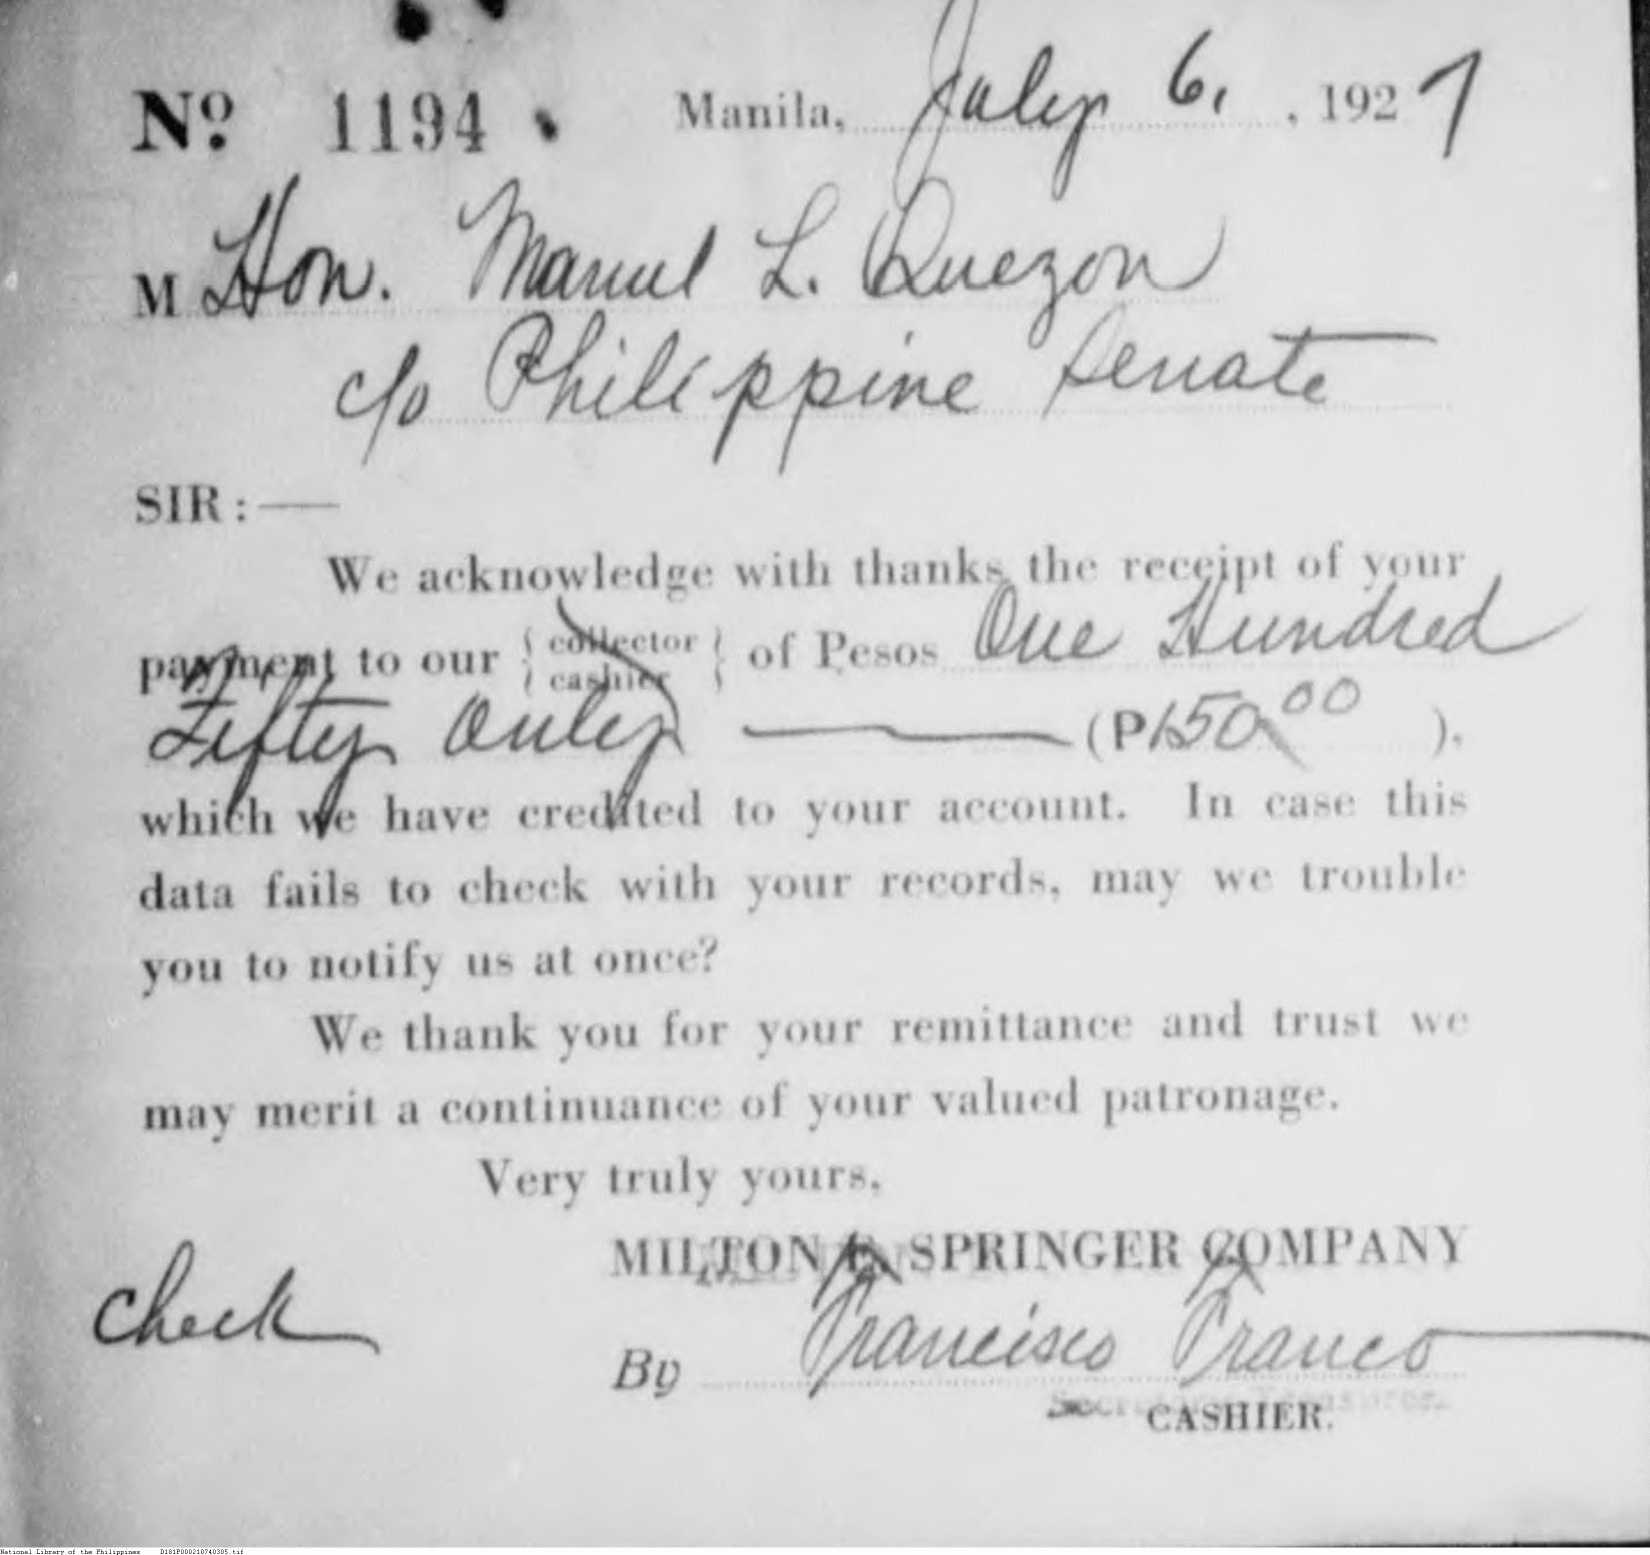 No. 1194 Manila, July 6, 1927
M Hon. Manuel L. Quezon
c/o Philippine Senate
SIR:—
We acknowledge with thanks the receipt of your
payment to our { collector cashier } of Pesos One Hundred
Fifty Only (P150.00).
which we have credited to your account. In case this
data fails to check with your records, may we trouble
you to notify us at once?
We thank you for your remittance and trust we
may merit a continuance of your valued patronage.
Very truly yours,
MILTON E. SPRINGER COMPANY
Check
By Francisco Franco
Secretary-Treasurer.
CASHIER.
National Library of the Philippines D181P000210740305.tif